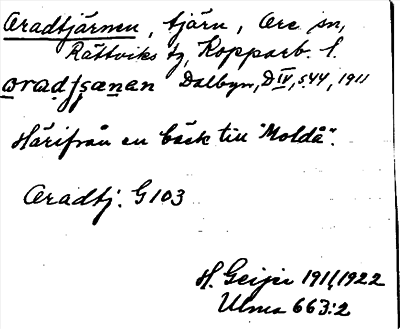 Oradtjärnen, tjärn, Ore sn,
Rättviks tg, Kopparb. l.
Dalbyn, D IV, s 44, 1911
Härifrån en bäck till "Moldå".
Oradtj. G 103
H. Geijer 1911, 1922
Ulma 663:2